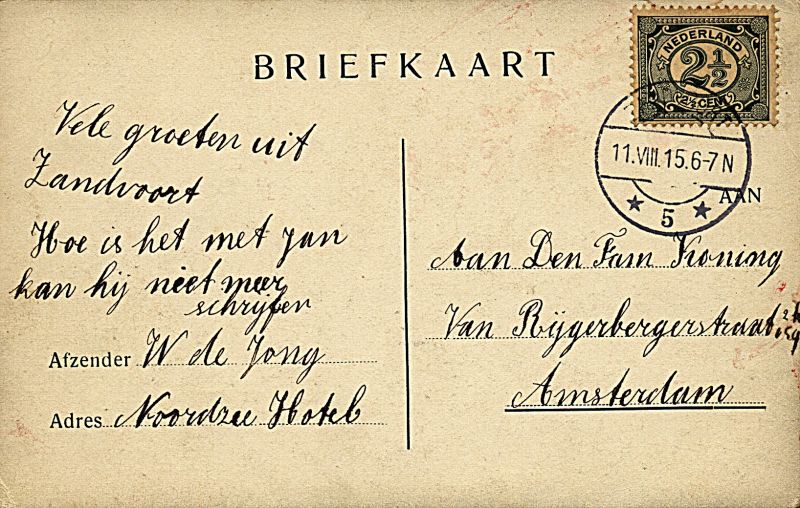 BRIEFKAART
NEDERLAND
2½
2½ CENT
11.VIII.15.6-7 N
5
Vele groeten uit
Zandvoort
Hoe is het met Jan
kan hij niet meer
schrijfen
Afzender W de Jong
Adres Noordzee Hotel
AAN
Aan Den Fam Koning
Van Rijgerbergerstraat
Amsterdam